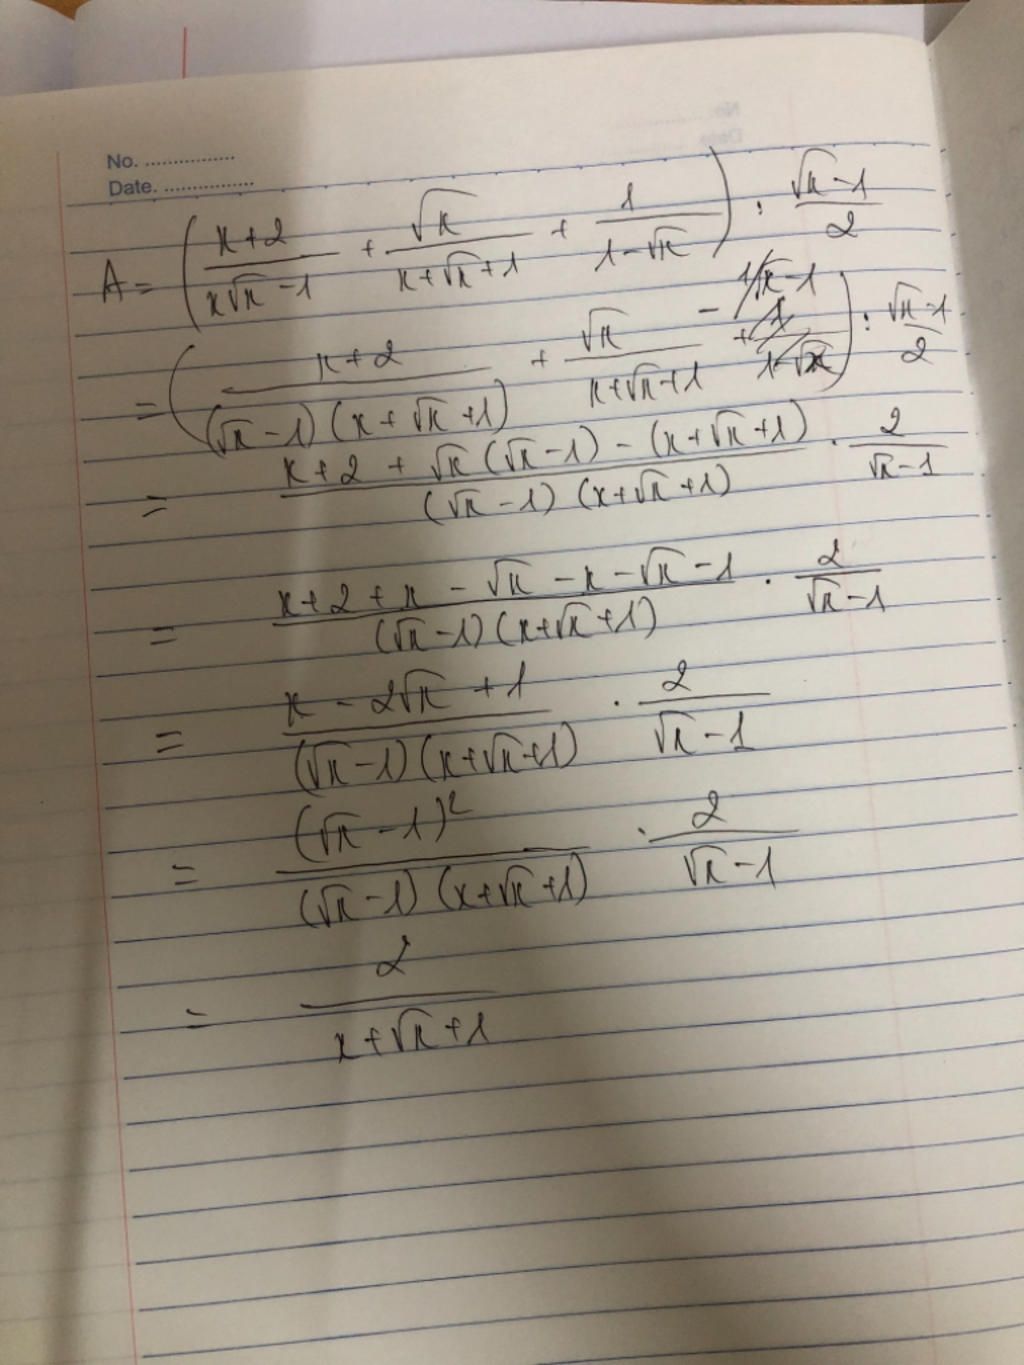 No. ................
Date. ................
A = ( (x+2)/(x√x -1) + √x/(x+√x+1) + 1/(1-√x) ) : (√x-1)/2
= ( (x+2)/((√x-1)(x+√x+1)) + √x/(x+√x+1) - 1/(√x-1) ) : (√x-1)/2
= (x+2+√x(√x-1)-(x+√x+1))/((√x-1)(x+√x+1)) . 2/(√x-1)
= (x+2+x-√x-x-√x-1)/((√x-1)(x+√x+1)) . 2/(√x-1)
= (x-2√x+1)/((√x-1)(x+√x+1)) . 2/(√x-1)
= (√x-1)²/((√x-1)(x+√x+1)) . 2/(√x-1)
= 2/(x+√x+1)